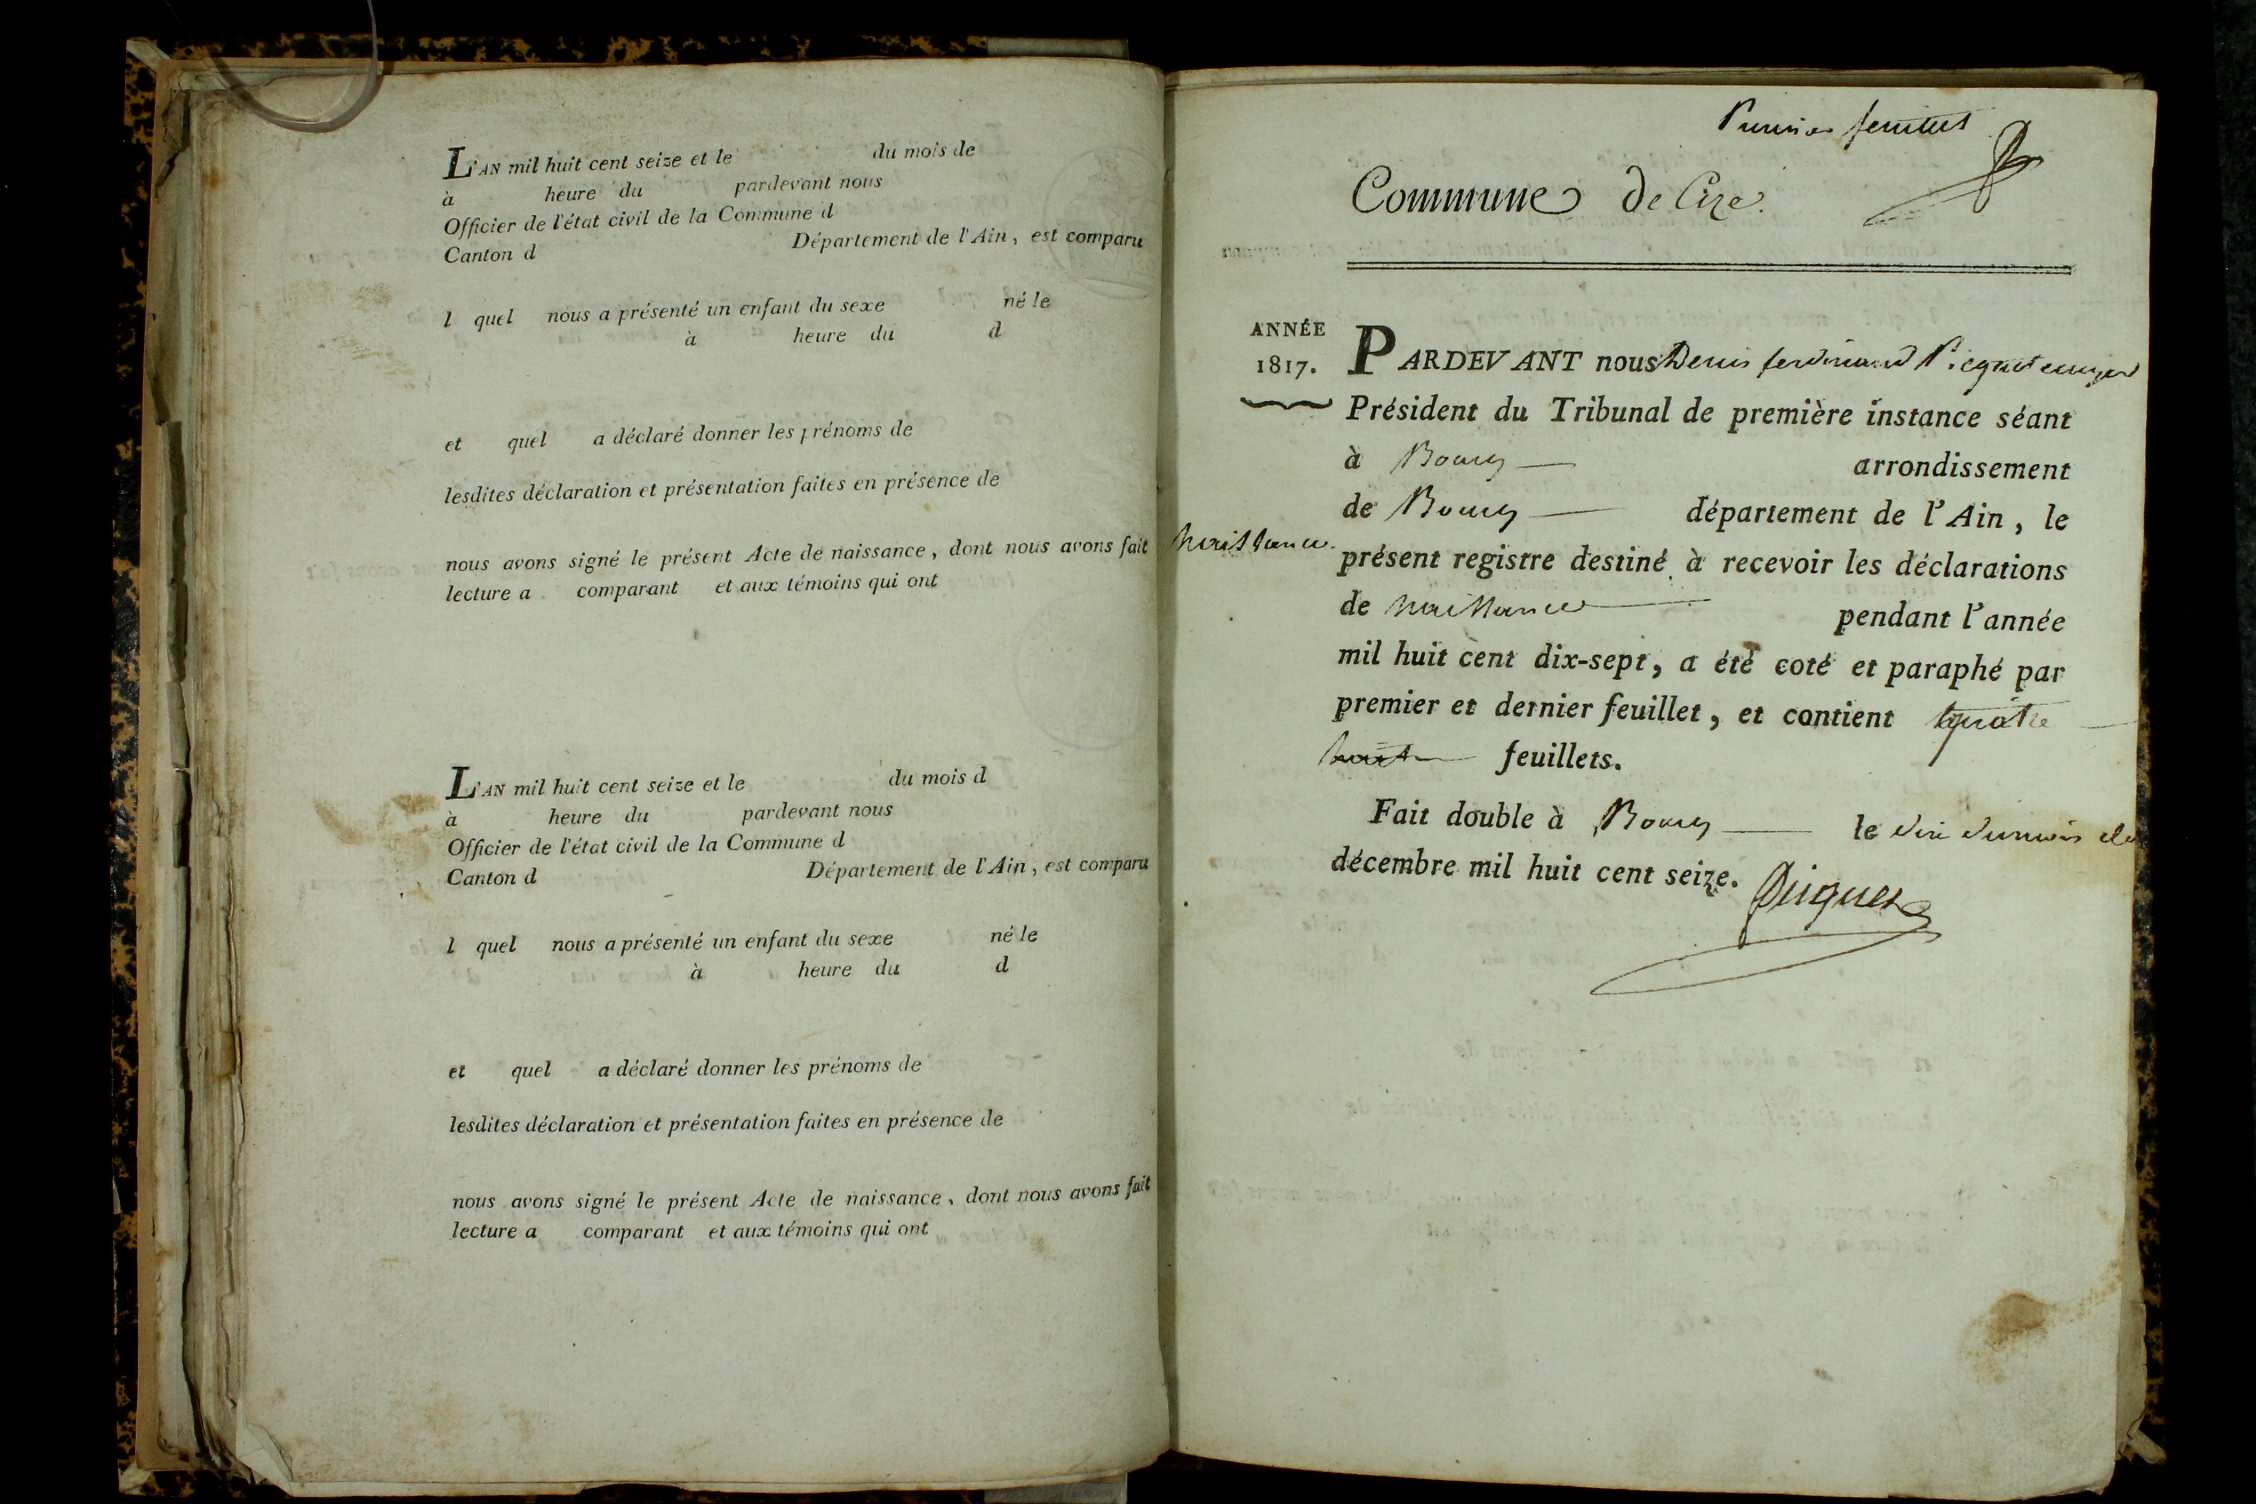 L'AN mil huit cent seize et le du mois de
à heure du pardevant nous
Officier de l'état civil de la Commune d
Canton d Département de l'Ain, est comparu
l quel nous a présenté un enfant du sexe né le
à heure du d
et quel a déclaré donner les prénoms de
lesdites déclaration et présentation faites en présence de
nous avons signé le présent Acte de naissance, dont nous avons fait
lecture a comparant et aux témoins qui ont
L'AN mil huit cent seize et le du mois d
à heure du pardevant nous
Officier de l'état civil de la Commune d
Canton d Département de l'Ain, est comparu
l quel nous a présenté un enfant du sexe né le
à heure du d
et quel a déclaré donner les prénoms de
lesdites déclaration et présentation faites en présence de
nous avons signé le présent Acte de naissance, dont nous avons fait
lecture a comparant et aux témoins qui ont
Premier feuillet
Commune de Cize.
ANNÉE
1817.
PARDEVANT nous Denis ferdinand
Président du Tribunal de première instance séant
à Bourg arrondissement
de Bourg département de l'Ain, le
Naissance.
présent registre destiné à recevoir les déclarations
de Naissance pendant l'année
mil huit cent dix-sept, a été coté et paraphé par
premier et dernier feuillet, et contient quatre
feuillets.
Fait double à Bourg le
décembre mil huit cent seize.